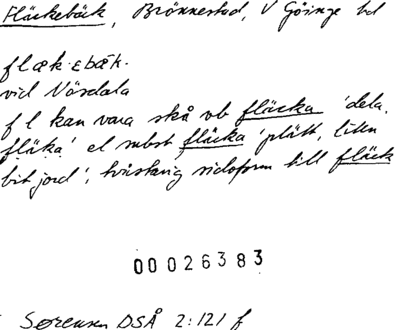 Fläckebäck, Brönnestad, V Göinge hd
flæk·ɛbæk·
vid Vörsdala
f l kan vara skå vb fläcka 'dela,
fläka' el subst fläcka 'plätt, liten
bit jord', tvåstavig sidoform till fläck
00026383
Sørensen DSÅ 2:121 f